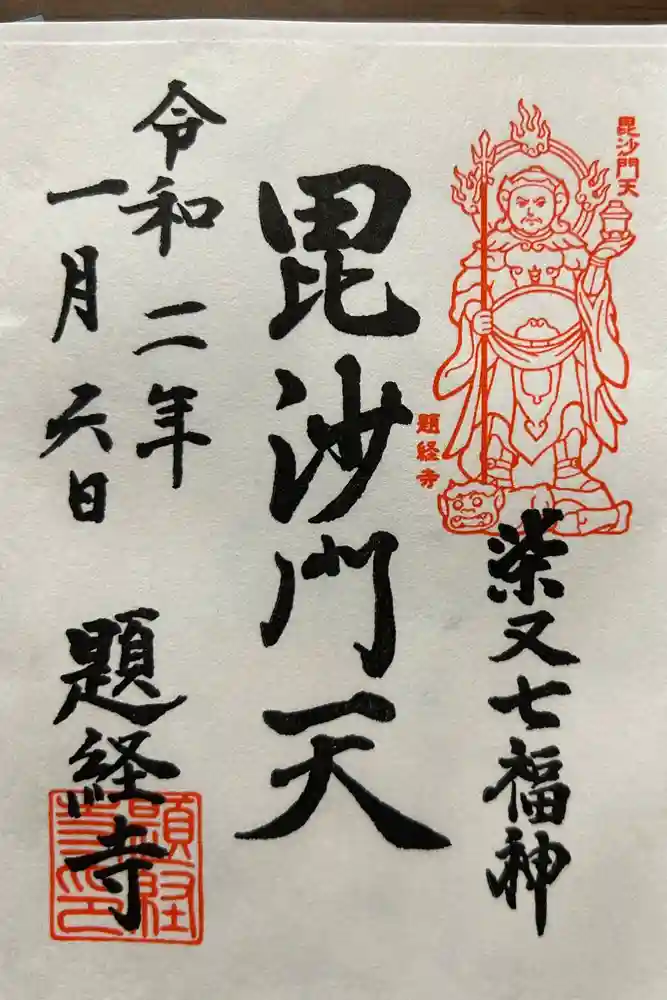 毘沙門天
題経寺
柴又七福神
毘沙門天
令和二年
一月六日
題経寺
題経
寺印